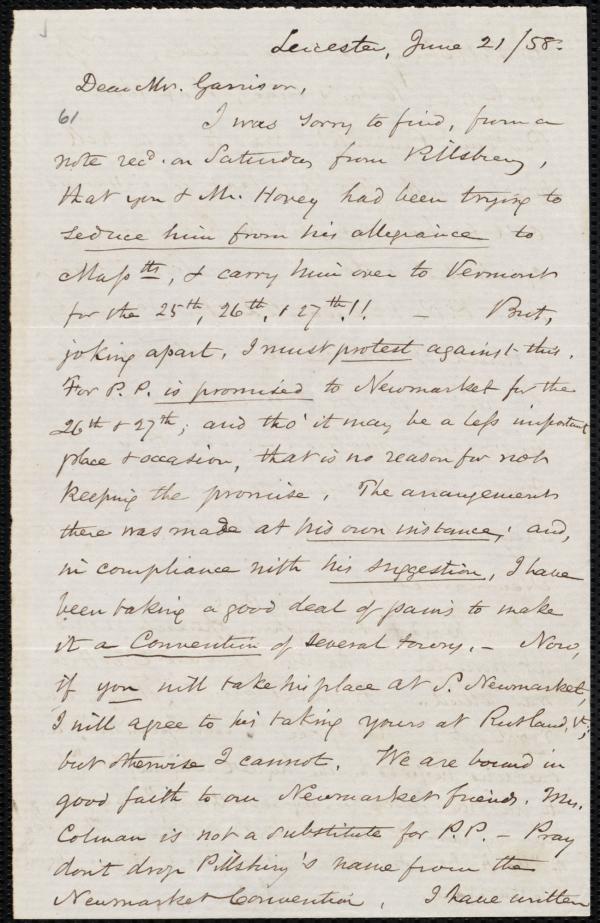 Leicester, June 21/58.
Dear Mr. Garrison,
61
I was sorry to find, from a
note recd. on Saturday from Pillsbury,
that you & Mr. Hovey had been trying to
seduce him from his allegiance to
Mass tts, & carry him over to Vermont
for the 25th, 26th, & 27th!! — But,
joking apart, I must protest against this.
For P. P. is promised to Newmarket for the
26th & 27th; and tho' it may be a less important
place & occasion, that is no reason for not
keeping the promise. The arrangement
there was made at his own instance; and,
in compliance with his suggestion, I have
been taking a good deal of pains to make
it a Convention of several towns. — Now,
if you will take his place at S. Newmarket,
I will agree to his taking yours at Rutland, Vt;
but otherwise I cannot. We are bound in
good faith to our Newmarket friends. Mrs.
Colman is not a substitute for P. P. — Pray
don't drop Pillsbury's name from the
Newmarket Convention. I have written